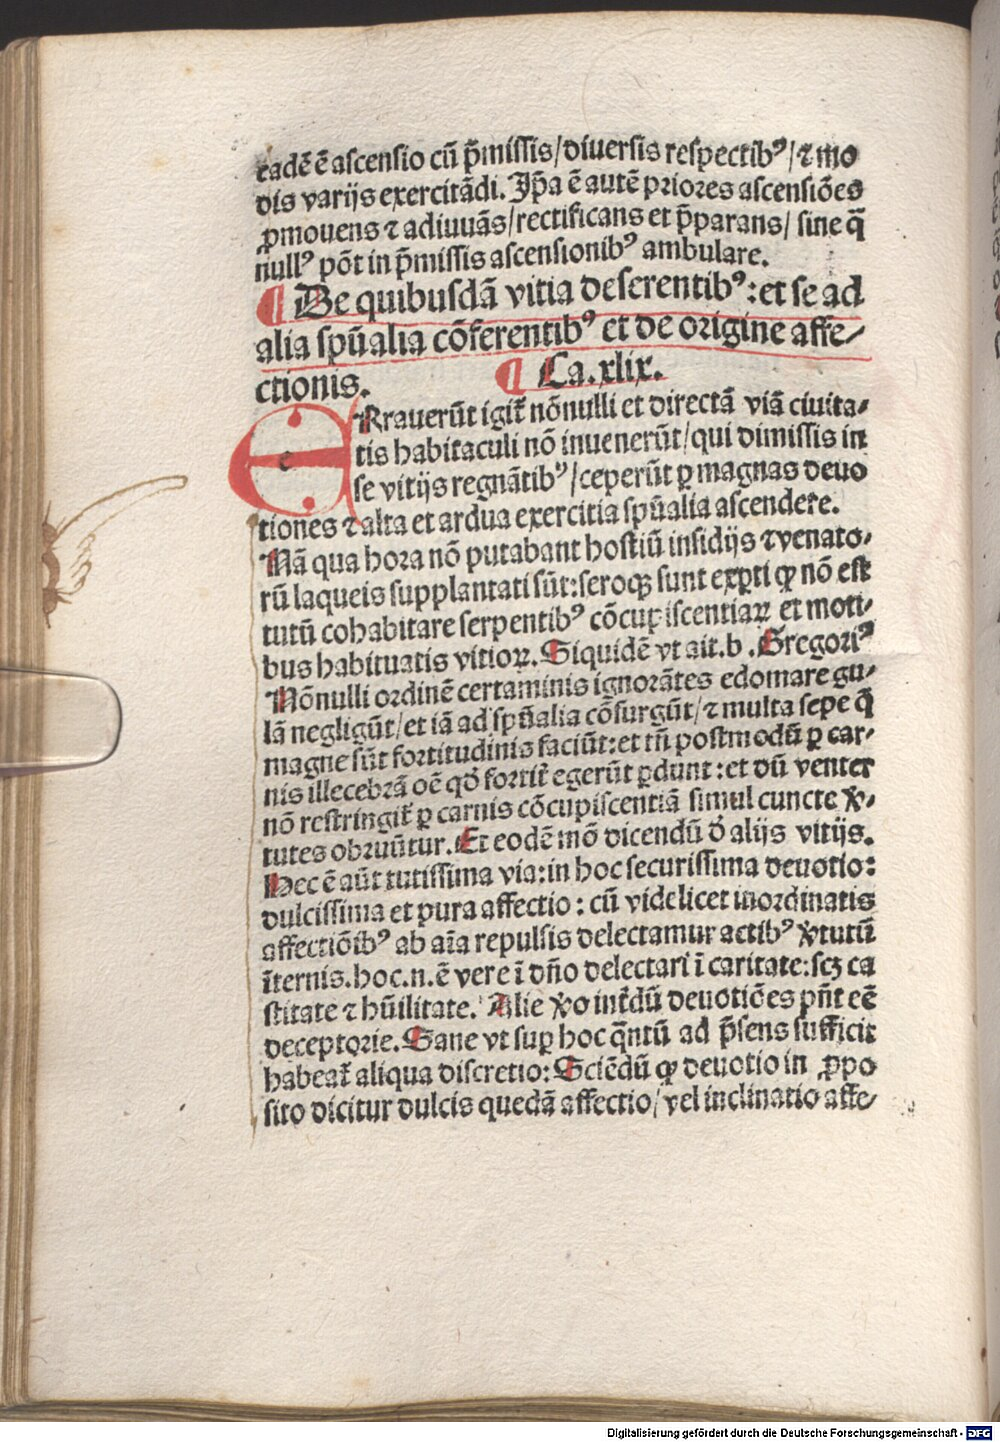 eadē ē ascensio cū p̄missis/diuersis respectibꝰ/⁊ mo
dis varijs exercitādi. Ip̄a ē autē priores ascensiões
ꝓmouens ⁊ adiuuās/rectificans et p̄parans/ sine q̄
nullꝰ põt in p̄missis ascensionibꝰ ambulare.
¶ De quibusdā vitia deserentibꝰ: et se ad
alia sp̄ualia cōferentibꝰ et de origine affe/
ctionis. ¶ Ca. xlix.
ERrauerūt igit̄ nōnulli et directā viā ciuita/
tis habitaculi nō inuenerūt/qui dimissis in
se vitijs regnātibꝰ/ceperūt ꝑ magnas deuo
tiones ⁊ alta et ardua exercitia sp̄ualia ascendere.
Nā qua hora nō putabant hostiū insidijs ⁊ venato/
rū laqueis supplantati sūt: seroqꝫ sunt exꝑti ꝙ nō est
tutū cohabitare serpentibꝰ cōcupiscentiaꝝ et moti/
bus habituatis vitioꝝ. Siquidē vt ait. b. Gregoriꝰ
Nōnulli ordinē certaminis ignorātes edomare gu/
lā negligūt/et iā ad sp̄ualia cōsurgūt/⁊ multa sepe q̄
magne sūt fortitudinis faciūt: et tn̄ postmodū ꝑ car/
nis illecebrā oē qd̄ fortit̄ egerūt ꝑdunt: et dū venter
nō restringit̄ ꝑ carnis cōcupiscentiā simul cuncte v̄/
tutes obruūtur. Et eodē mō dicendū d̄ alijs vitijs.
Hec ē aūt tutissima via: in hoc securissima deuotio:
dulcissima et pura affectio: cū videlicet inordinatis
affectiōibꝰ ab aīa repulsis delectamur actibꝰ v̄tutū
īternis. hoc .n. ē vere ī dn̄o delectari ī caritate: scꝫ ca
stitate ⁊ hūilitate. Alie v̄o int̄dū deuotiões pn̄t eē
deceptorie. Sane vt suꝑ hoc q̄ntū ad p̄sens sufficit
habeat̄ aliqua discretio: Sciēdū ꝙ deuotio in ꝓpo
sito dicitur dulcis quedā affectio/vel inclinatio affe/
Digitalisierung gefördert durch die Deutsche Forschungsgemeinschaft - DFG